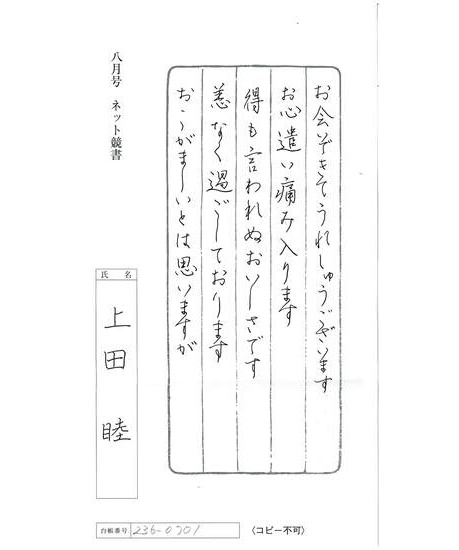 お会いできてうれしゅうございます
お心遣い痛み入ります
得も言われぬおいしさです
恙なく過ごしております
おこがましいとは思いますが
八月号 ネット競書
氏名
上田 睦
台帳番号 236-0701
〈コピー不可〉